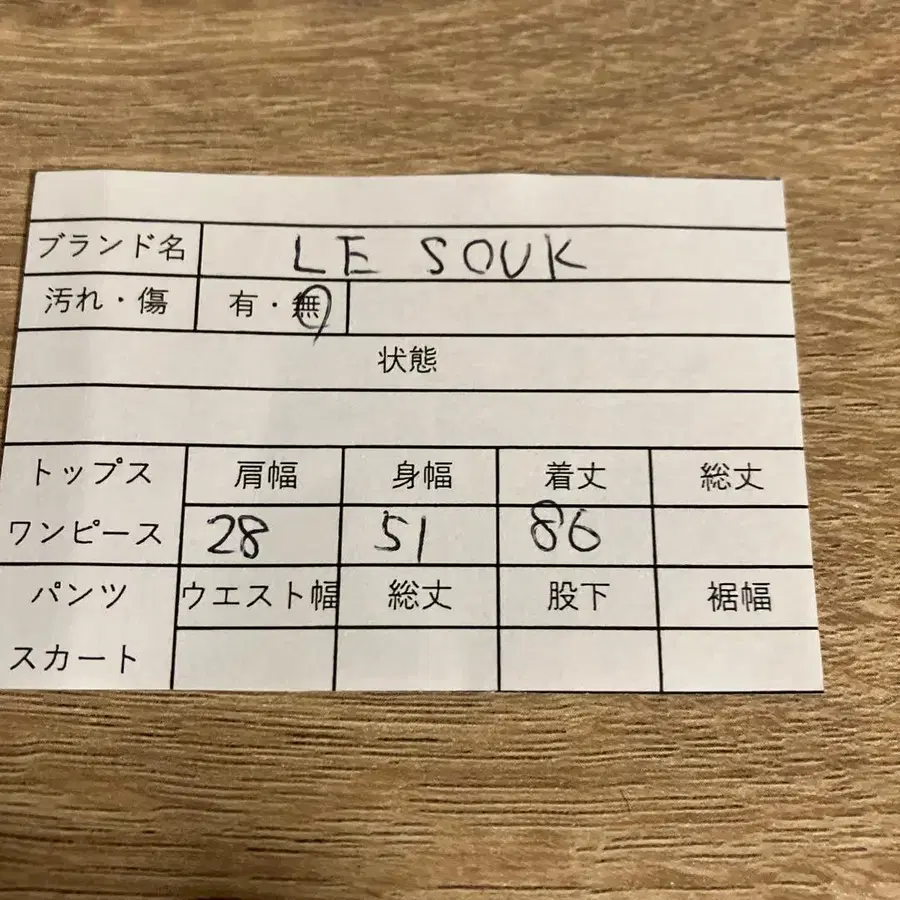 ブランド名 LE SOUK
汚れ・傷 有・無
状態
トップス 肩幅 身幅 着丈 総丈
ワンピース 28 51 86
パンツ ウエスト幅 総丈 股下 裾幅
スカート